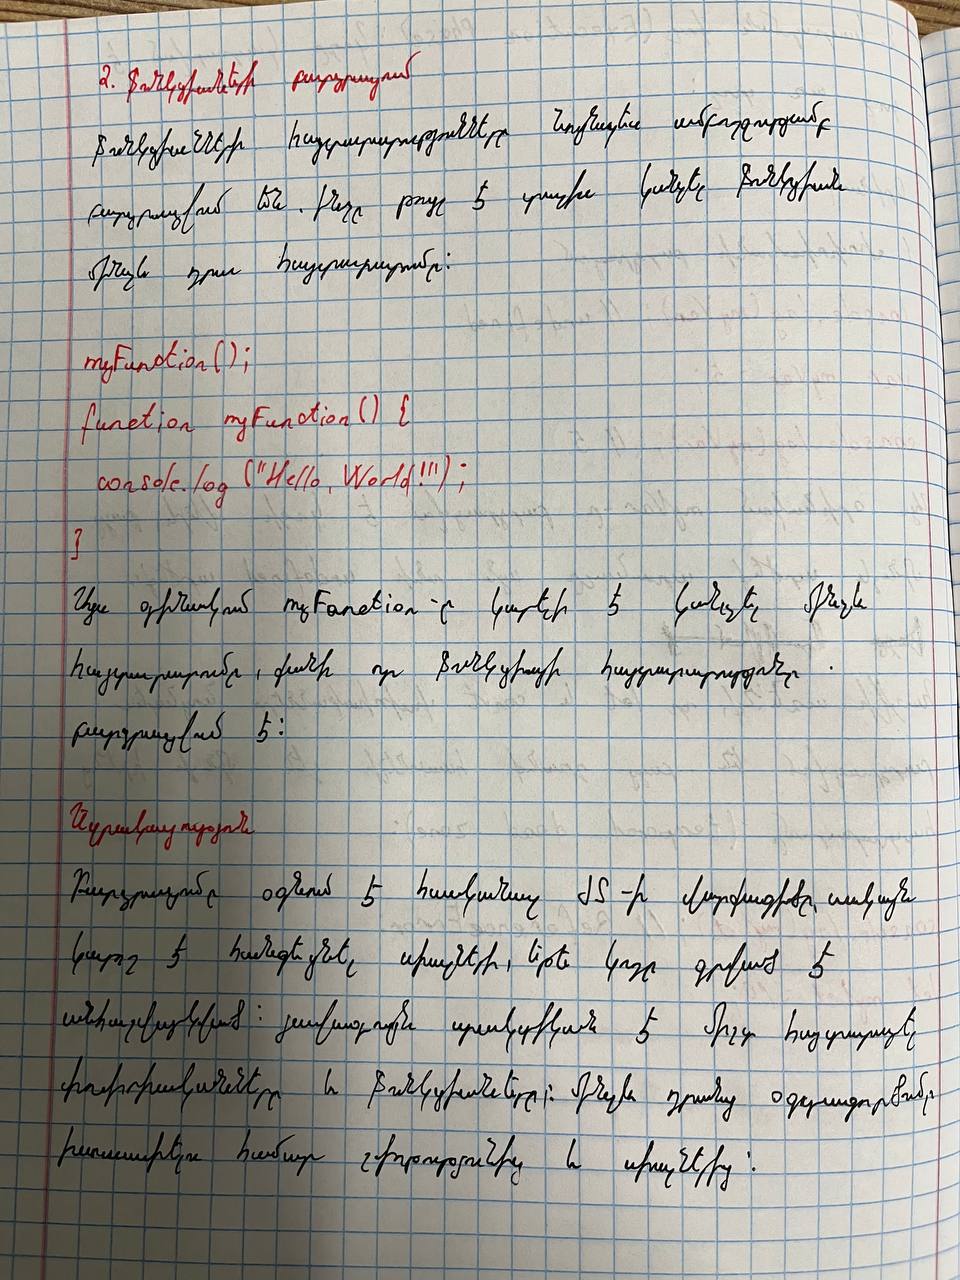 2. Ֆունկցիաների բարձրացում
Ֆունկցիաների հայտարարությունները նույնպես ամբողջությամբ
բարձրացված են. ինչը թույլ է տալիս կանչել ֆունկցիան
մինչև դրա հայտարարումը:
myFunction();
function myFunction() {
console.log ("Hello, World!!");
}
Այս օրինակում myFunction-ը կարելի է կանչել մինչև
հայտարարումը, քանի որ ֆունկցիայի հայտարարությունը
բարձրացված է:
Եզրակացություն
Բարձրացումը օգնում է հասկանալ JS-ի վարքագիծը, սակայն
կարող է հանգեցնել սխալների, եթե կոդը գրված է
անհաջվարկված: լավագույն պրակտիկան է միշտ հայտարարել
փոփոխականները և ֆունկցիաները: մինչև դրանց օգտագործումը
խուսափելու համար շփոթությունից և սխալներից: